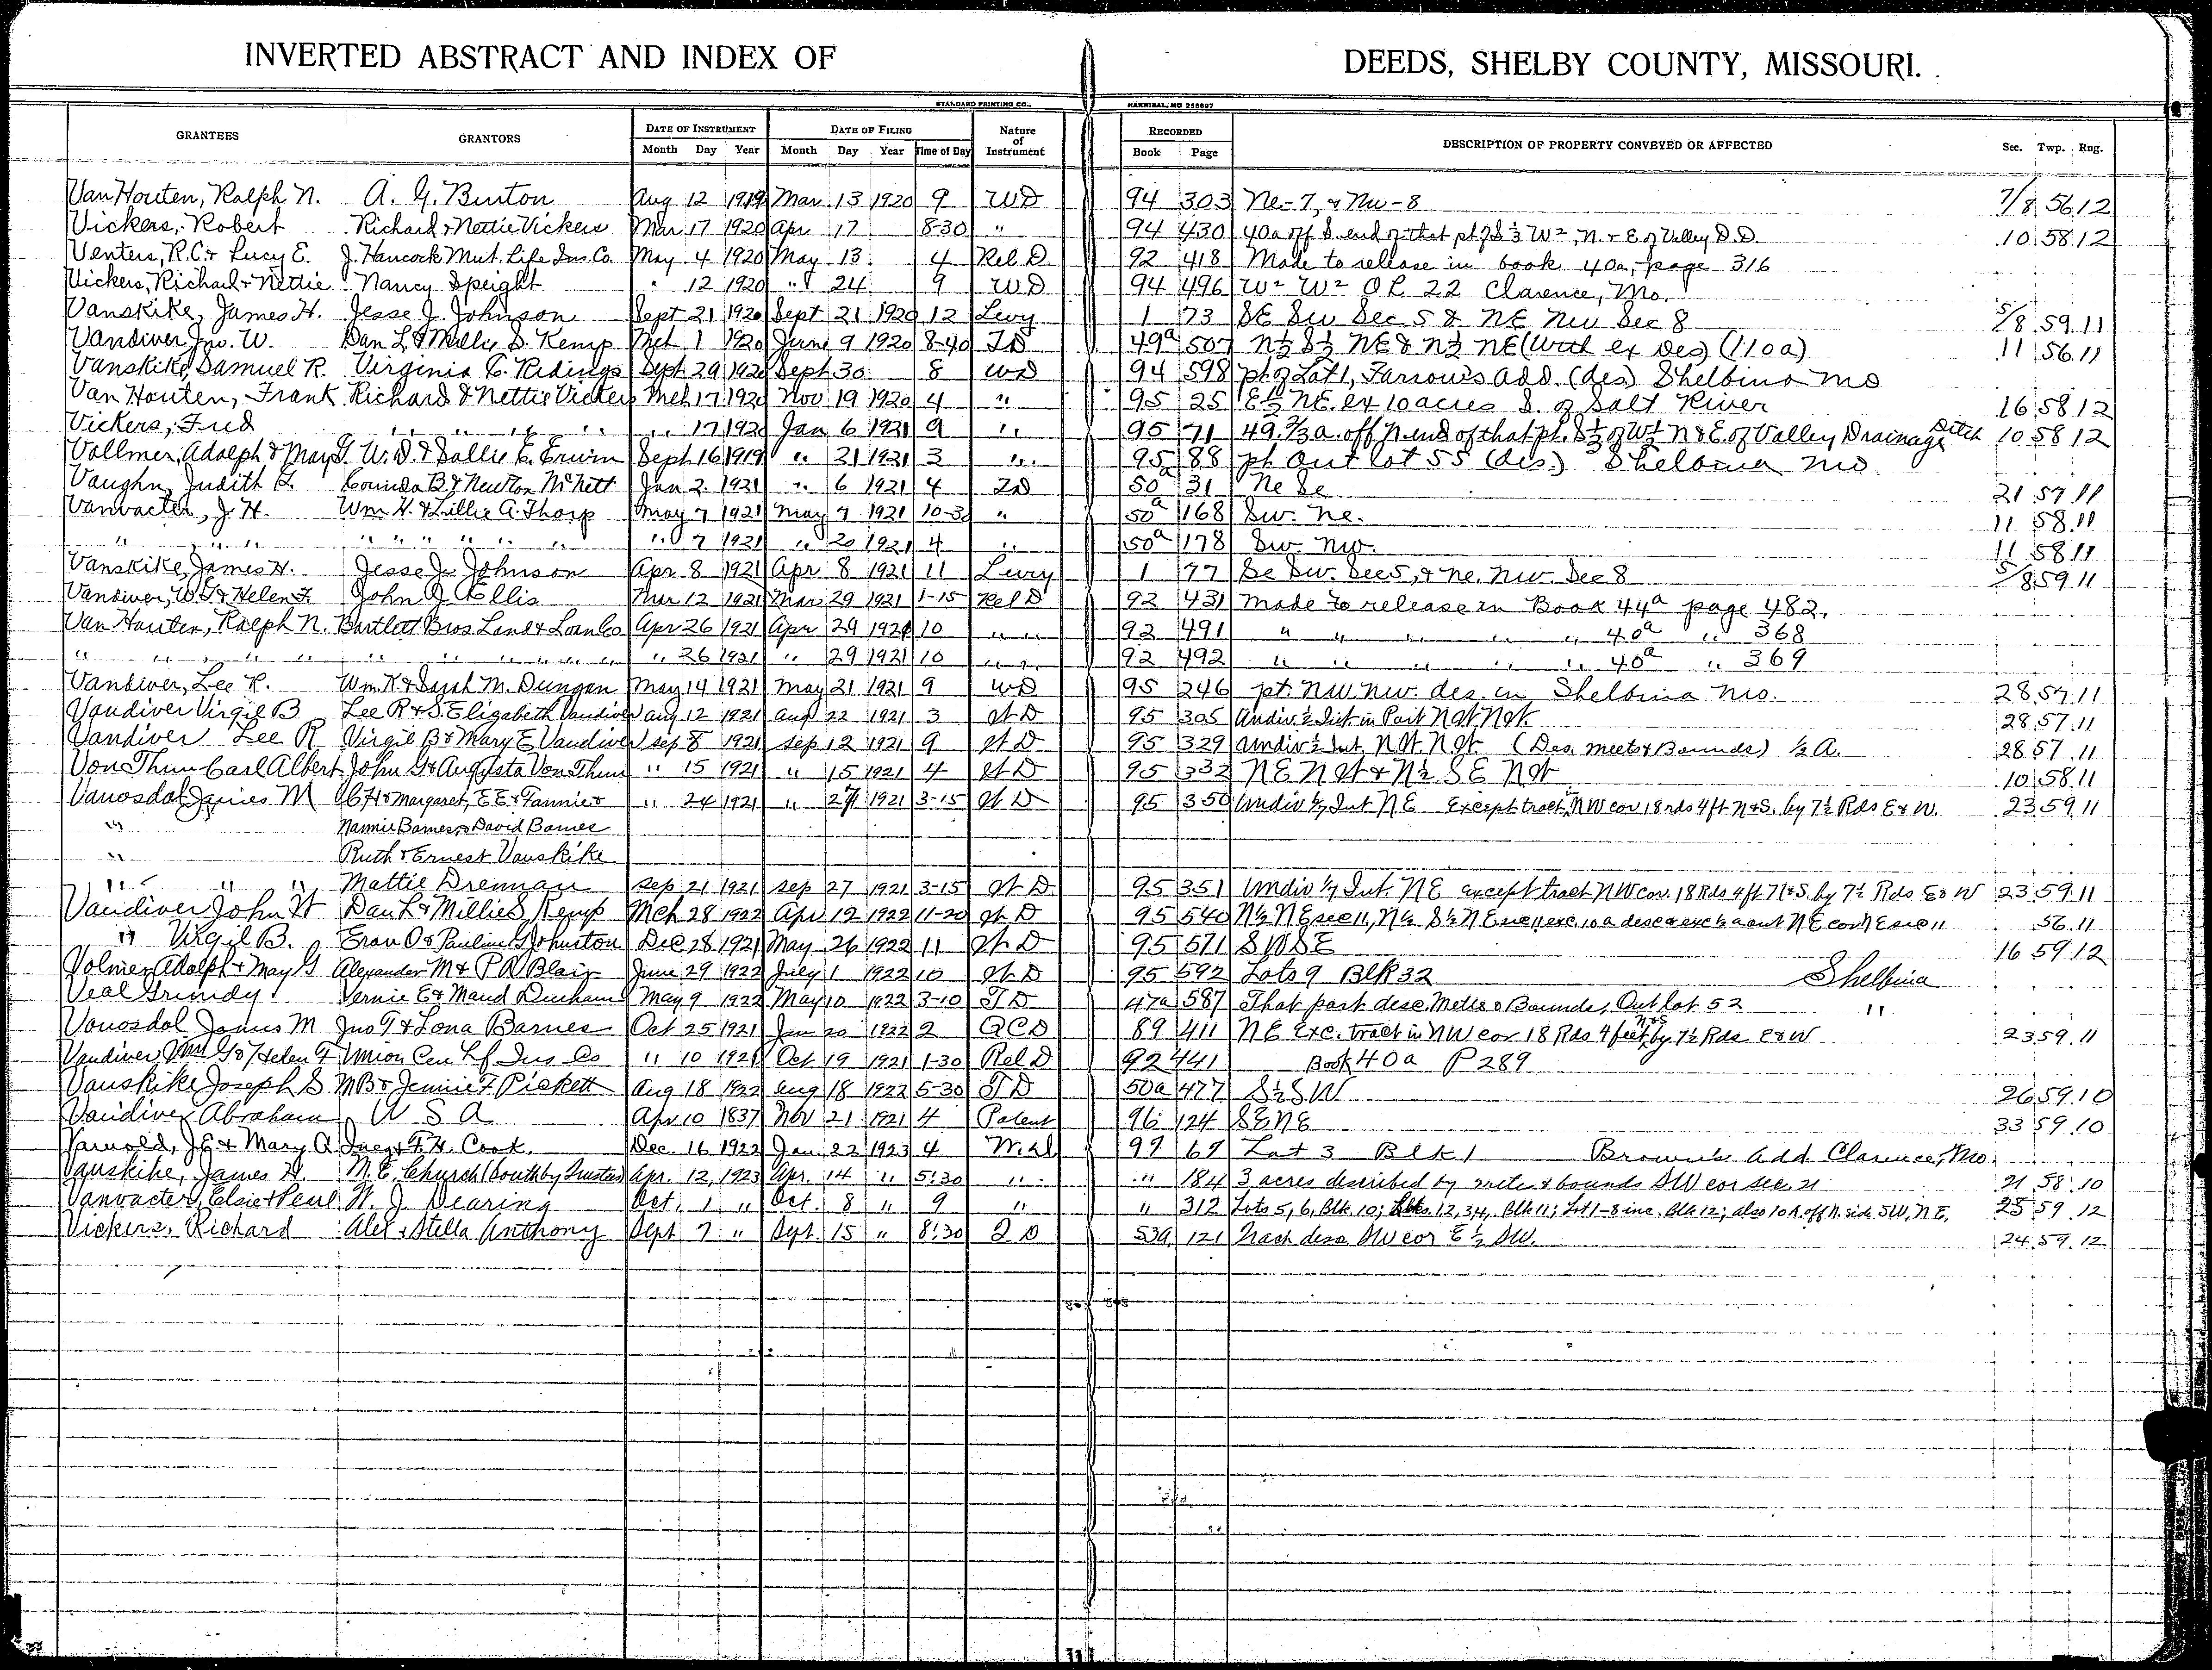 INVERTED ABSTRACT AND INDEX OF DEEDS, SHELBY COUNTY, MISSOURI.
STANDARD PRINTING CO., HANNIBAL, MO 256897
GRANTEES GRANTORS DATE OF INSTRUMENT DATE OF FILING Nature of Instrument RECORDED DESCRIPTION OF PROPERTY CONVEYED OR AFFECTED Sec. Twp. Rng.
Month Day Year Month Day Year Time of Day Book Page
Van Houten, Ralph N. A. G. Burton Aug 12 1919 Mar 13 1920 9 WD 94 303 Ne-7, & Nw-8 7/8 56 12
Vickers, Robert Richard & Nettie Vickers Mar 17 1920 Apr 17 8-30 " 94 430 40a off S. end of that pt of S 1/3 W 2, N. & E. of Valley D.D. 10 58 12
Venters, R.C. & Lucy E. J. Hancock Mut. Life Ins. Co. May 4 1920 May 13 4 Rel D 92 418 Made to release in book 40a, page 316
Vickers, Richard & Nettie Nancy Speight " 12 1920 " 24 9 WD 94 496 W 2 W 2 OL 22 Clarence, Mo.
Vanskike, James H. Jesse J. Johnson Sept 21 1920 Sept 21 1920 12 Levy 1 73 SE Sw Sec 5 & NE NW Sec 8 5/8 59 11
Vandiver Jno. W. Dan L & Millie S. Kemp Mch 1 1920 June 9 1920 8-40 TD 49a 507 N½ S½ NE & N½ NE (with ex Des) (110a) 11 56 11
Vanskike, Samuel R. Virginia C. Ridings Sept 29 1920 Sept 30 8 WD 94 598 pt of Lot 1, Farrow's Add. (des) Shelbina Mo
Van Houten, Frank Richard & Nettie Vickers Mch 17 1920 Nov 19 1920 4 " 95 25 E½ NE. ex 10 acres S. of Salt River 16 58 12
Vickers, Fred " " " " " 17 1920 Jan 6 1921 9 " 95 71 49 2/3 a. off N. end of that pt. S½ of W½ N & E. of Valley Drainage Ditch 10 58 12
Vollmer, Adolph & May G. W. D. & Sallie E. Erwin Sept 16 1919 " 21 1921 3 " 95 88 pt Out lot 55 (des.) Shelbina Mo.
Vaughn, Judith E. Counda B. & Newton McNett Jan 2 1921 " 6 1921 4 TD 50a 31 Ne Se 21 57 11
Vanvacter, J. H. Wm H. & Lillie A. Thorp May 7 1921 May 7 1921 10-30 " 50a 168 Sw. Ne. 11 58 11
" " " " " " " " " " 7 1921 " 20 1921 4 " 50a 178 Sw. Nw. 11 58 11
Vanskike, James H. Jesse J. Johnson Apr 8 1921 Apr 8 1921 11 Levy 1 77 Se Sw. Sec 5, & Ne. Nw. Sec 8 5/8 59 11
Vandiver, W. G. & Helen F. John J. Ellis Mar 12 1921 Mar 29 1921 1-15 Rel D 92 431 Made to release in Book 44a page 482.
Van Houten, Ralph N. Bartlett Bros Land & Loan Co Apr 26 1921 Apr 29 1921 10 " " 92 491 " " " " " 40a " 368
" " " " " " " " " 26 1921 " 29 1921 10 " " 92 492 " " " " " 40a " 369
Vandiver, Lee R. Wm. K. & Sarah M. Dungan May 14 1921 May 21 1921 9 WD 95 246 pt. NW NW. des. in Shelbina Mo. 28 57 11
Vandiver Virgil B Lee R & S. Elizabeth Vandiver Aug 12 1921 Aug 22 1921 3 W D 95 305 Undiv. ½ Int in Part NW NW. 28 57 11
Vandiver Lee R Virgil B & Mary E Vandiver Sep 8 1921 Sep 12 1921 9 W D 95 329 Undiv ½ Int. NW. NW. (Des. Meets & Bounds) ½ A. 28 57 11
Von Thun Carl Albert John G & Augusta Von Thun " 15 1921 " 15 1921 4 W D 95 332 NE NW & N½ SE NW 10 58 11
Vanosdol James M C H & Margaret, E E & Fannie & " 24 1921 " 27 1921 3-15 W D 95 350 Undiv 4/7 Int NE Except tract NW cor 18 rds 4 ft N & S. by 7½ Rds E & W. 23 59 11
" Nannie Barnes & David Barnes
" Ruth & Ernest Vanskike
" " " Mattie Drennan Sep 21 1921 Sep 27 1921 3-15 W D 95 351 Undiv 1/7 Int. NE except tract NW cor. 18 Rds 4 ft N & S. by 7½ Rds E & W 23 59 11
Vandiver John W Dan L & Millie S Kemp Mch 28 1922 Apr 12 1922 11-20 W D 95 540 N½ NE sec 11, N½ S½ NE sec 11 exc. 10 a desc & exc ½ a out NE cor NE sec 11 56 11
" Virgil B. Eran O & Pauline G Johnston Dec 28 1921 May 26 1922 11 W D 95 571 SWSE 16 59 12
Volmer Adolph & May G Alexander M & P A Blair June 29 1922 July 1 1922 10 W D 95 592 Lots 9 Blk 32 Shelbina
Veal Grundy Vernie E & Maud Dunham May 9 1922 May 10 1922 3-10 T D 47a 587 That part desc. Metes & Bounds, Out lot 52 "
Vanosdol James M Jno T & Lona Barnes Oct 25 1921 Jan 20 1922 2 QCD 89 411 NE Exc. tract in NW cor 18 Rds 4 feet N&S by 7½ Rds E & W 23 59 11
Vandiver Wm G & Helen F Union Cen Lf Ins Co " 10 1921 Oct 19 1921 1-30 Rel D 92 441 Book 40a P 289
Vanskike Joseph S M B & Jennie F Pickett Aug 18 1922 Aug 18 1922 5-30 T D 50a 477 S½ SW 26 59 10
Vandiver Abraham U S A Apr 10 1837 Nov 21 1921 4 Patent 96 124 SENE 33 59 10
Varnold, J E & Mary A Inez & F. H. Cook Dec. 16 1922 Jan 22 1923 4 W. D 97 69 Lot 3 Blk 1 Brown's Add Clarence, Mo.
Vanskike, James H. M. E. Church (South by Trustees) Apr. 12, 1923 Apr. 14 " 5:30 " " 184 3 acres described by mete & bounds SW cor sec. 21 21 58 10
Vanvacter, Elsie & Peul W. J. Dearing Oct. 1 " Oct. 8 " 9 " " 312 Lots 5, 6, Blk 10; Lots 1, 2, 3, 4, Blk 11; Lot 1-8 inc. Blk 12; also 10 A off N. side SW, NE, 25 59 12
Vickers, Richard Alex & Stella Anthony Sept 7 " Sept. 15 " 8:30 T D 53a 121 Trach desc. SW cor E ½ SW. 24 59 12